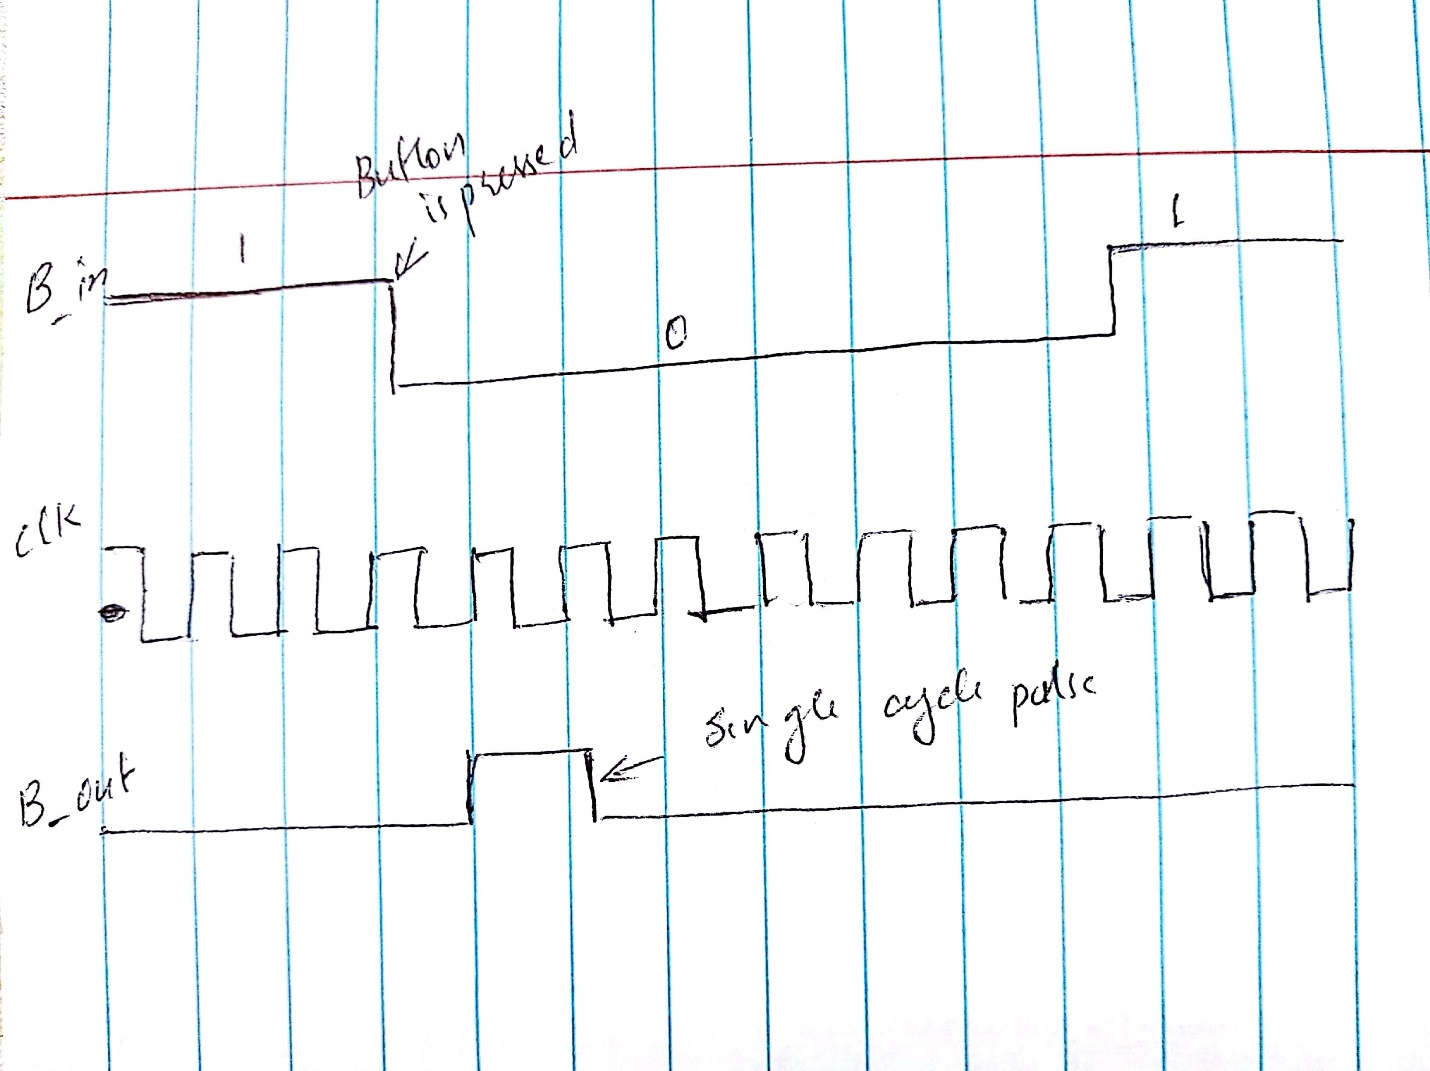 Button
is pressed
1
1
B_in
0
clk
single cycle pulse
B_out